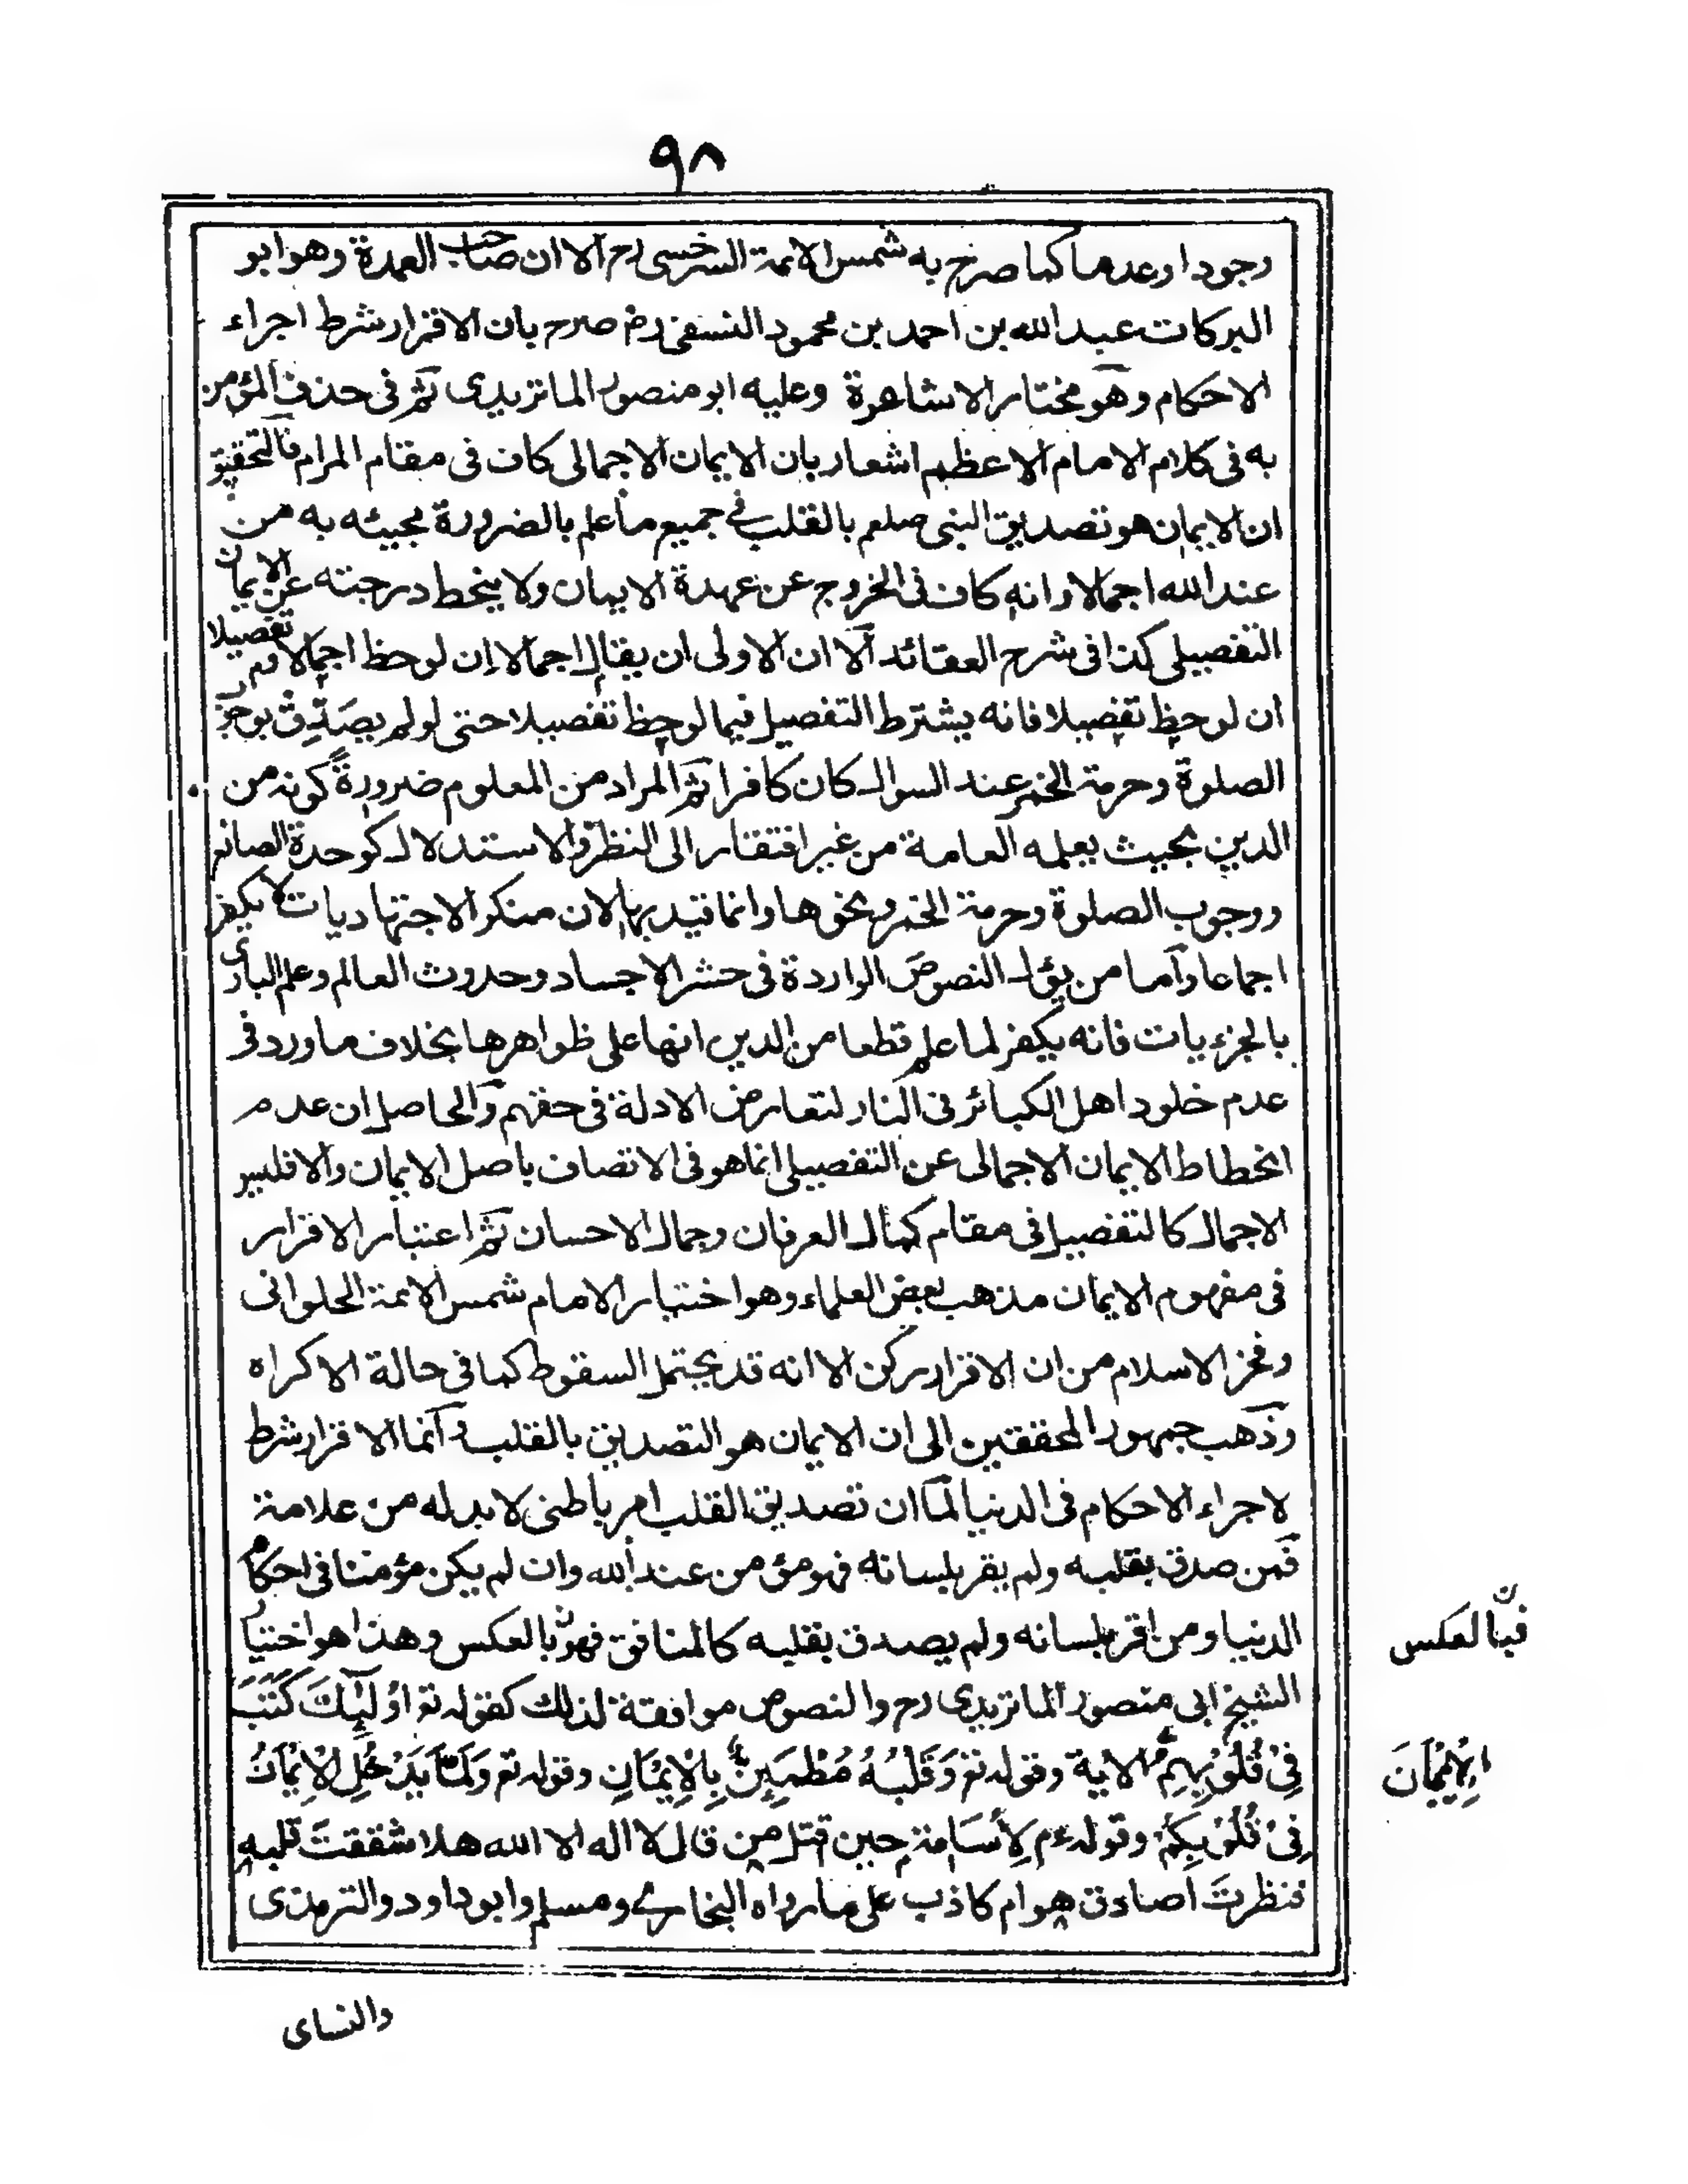 ٩٨
وجودا وعدما كما صرح به شمس الائمة السرخسى رح الا ان صاحب العمدة وهو ابو
البركات عبد الله بن احمد بن محمود النسفى رح صرح بان الاقرار شرط اجراء
الاحكام وهو مختار الاشاعرة وعليه ابو منصور الماتريدى ثم فى حذف المؤمن
به فى كلام الامام الاعظم اشعار بان الايمان الاجمالى كاف فى مقام المرام فالتحقيق
ان الايمان هو تصديق النبى صلعم بالقلب فى جميع ما علم بالضرورة مجيئه به من
عند الله اجمالا وانه كاف فى الخروج عن عهدة الايمان ولا ينحط درجته عن الايمان
التفصيلى كذا فى شرح العقائد الا ان الاولى ان يقال اجمالا ان لوحظ اجمالا وتفصيلا
ان لوحظ تفصيلا فانه يشترط التفصيل فيما لوحظ تفصيلا حتى لو لم يصدق بوجوب
الصلوة وحرمة الخمر عند السوال كان كافرا ثم المراد من المعلوم ضرورة كونه من
الدين بحيث يعلمه العامة من غير افتقار الى النظر والاستدلال كوحدة الصانع
ووجوب الصلوة وحرمة الخمر ونحوها وانما قيد بها لان منكر الاجتهاديات لا يكفر
اجماعا واما من يؤل النصوص الواردة فى حشر الاجساد وحدوث العالم وعلم البارى
بالجزءيات فانه يكفر لما علم قطعا من الدين انها على ظواهرها بخلاف ما ورد فى
عدم خلود اهل الكبائر فى النار لتعارض الادلة فى حقهم والحاصل ان عدم
انحطاط الايمان الاجمالى عن التفصيلى انما هو فى الاتصاف باصل الايمان والا فليس
الاجمال كالتفصيل فى مقام كمال العرفان وجمال الاحسان ثم اعتبار الاقرار
فى مفهوم الايمان مذهب بعض العلماء وهو اختيار الامام شمس الائمة الحلوانى
وفخر الاسلام من ان الاقرار ركن الا انه قد يحتمل السقوط كما فى حالة الاكراه
وذهب جمهور المحققين الى ان الايمان هو التصديق بالقلب وانما الاقرار شرط
لاجراء الاحكام فى الدنيا لما ان تصديق القلب امر باطنى لا بد له من علامة
فمن صدق بقلبه ولم يقر بلسانه فهو مؤمن عند الله وان لم يكن مؤمنا فى احكام
الدنيا ومن اقر بلسانه ولم يصدق بقلبه كالمنافق فهو بالعكس وهذا هو اختيار
فبالعكس
الشيخ ابى منصور الماتريدى رح والنصوص موافقة لذلك كقوله تع اُولٰٓئِكَ كَتَبَ
فِىْ قُلُوْبِهِمُ الاية وقوله تع وَقَلْبُهُ مُطْمَئِنٌّ بِالْاِيْمَانِ وقوله تع وَلَمَّا يَدْخُلِ الْاِيْمَانُ
الْاِيْمَانَ
فِىْ قُلُوْبِكُمْ وقوله عم لِأُسَامة حين قتل من قال لا اله الا الله هلا شققتَ قلبه
فنظرتَ اصادق هو ام كاذب على ما رواه البخارى ومسلم وابو داود والترمذى
والنساى